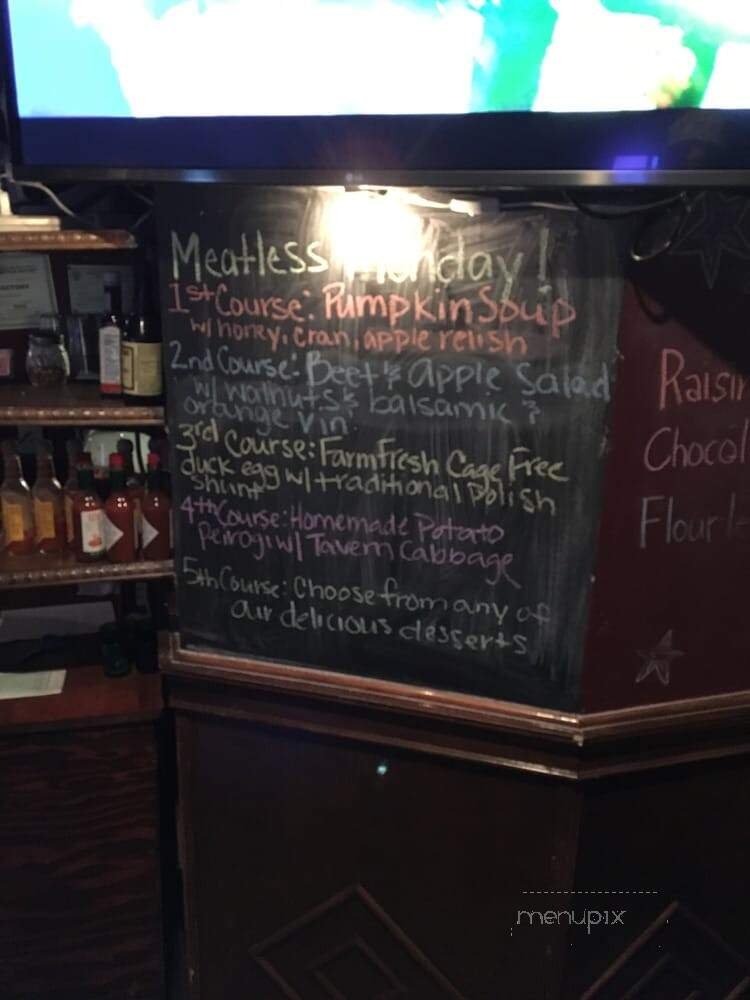 Meatless Monday!
1st Course: Pumpkin Soup
w/ honey, cran, apple relish
2nd Course: Beet & apple Salad
w/ walnuts & balsamic &
orange vin.
3rd Course: Farm Fresh Cage Free
duck egg w/ traditional Polish
4th Course: Homemade Potato
Peirogi w/ Tavern Cabbage
5th Course: Choose from any of
our delicious desserts
Raisin
Chocol
Flour
menupix